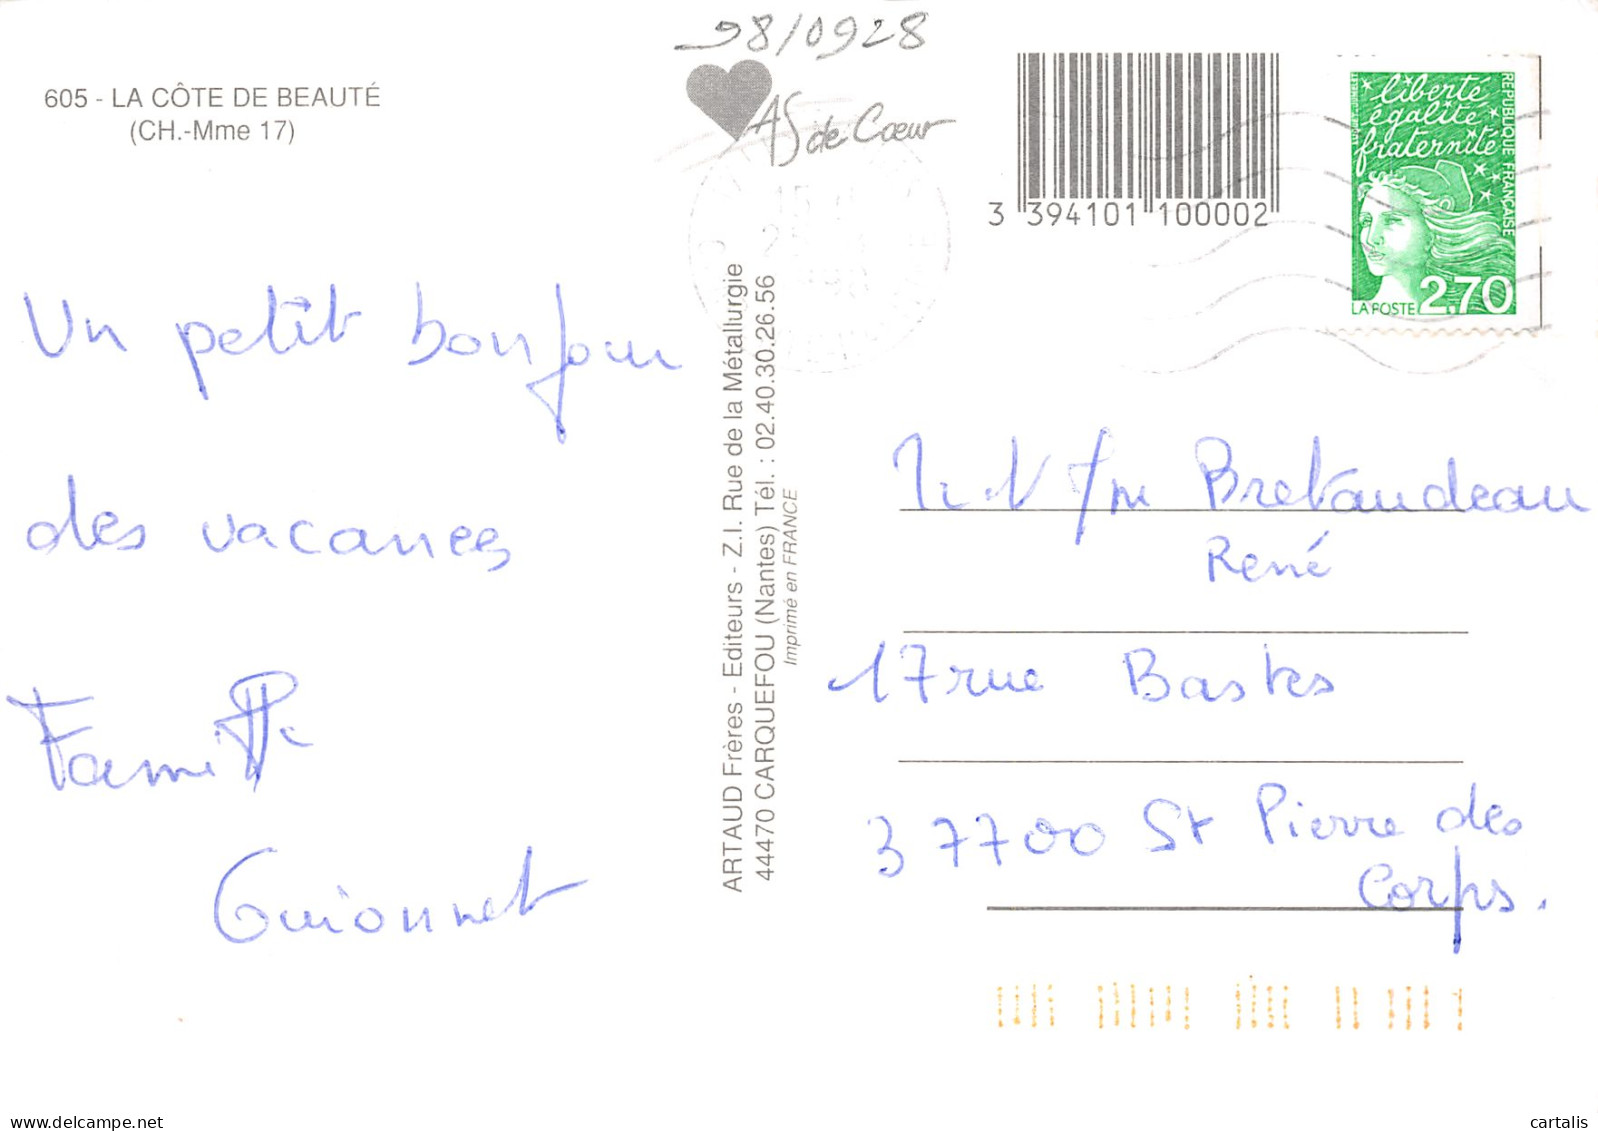 98/0928
605 - LA CÔTE DE BEAUTÉ
(CH.-Mme 17)
AS de Cœur
3 394101 100002
liberté
égalité
fraternité
RÉPUBLIQUE FRANÇAISE
LA POSTE 2,70
Un petit bonjour
des vacances
Famille
Guionnet
ARTAUD Frères - Editeurs - Z.I. Rue de la Métallurgie
44470 CARQUEFOU (Nantes) Tél. : 02.40.30.26.56
Imprimé en FRANCE
Bretaudeau
René
17 rue Bastes
37700 St Pierre des
Corps.
delcampe.net
cartalis